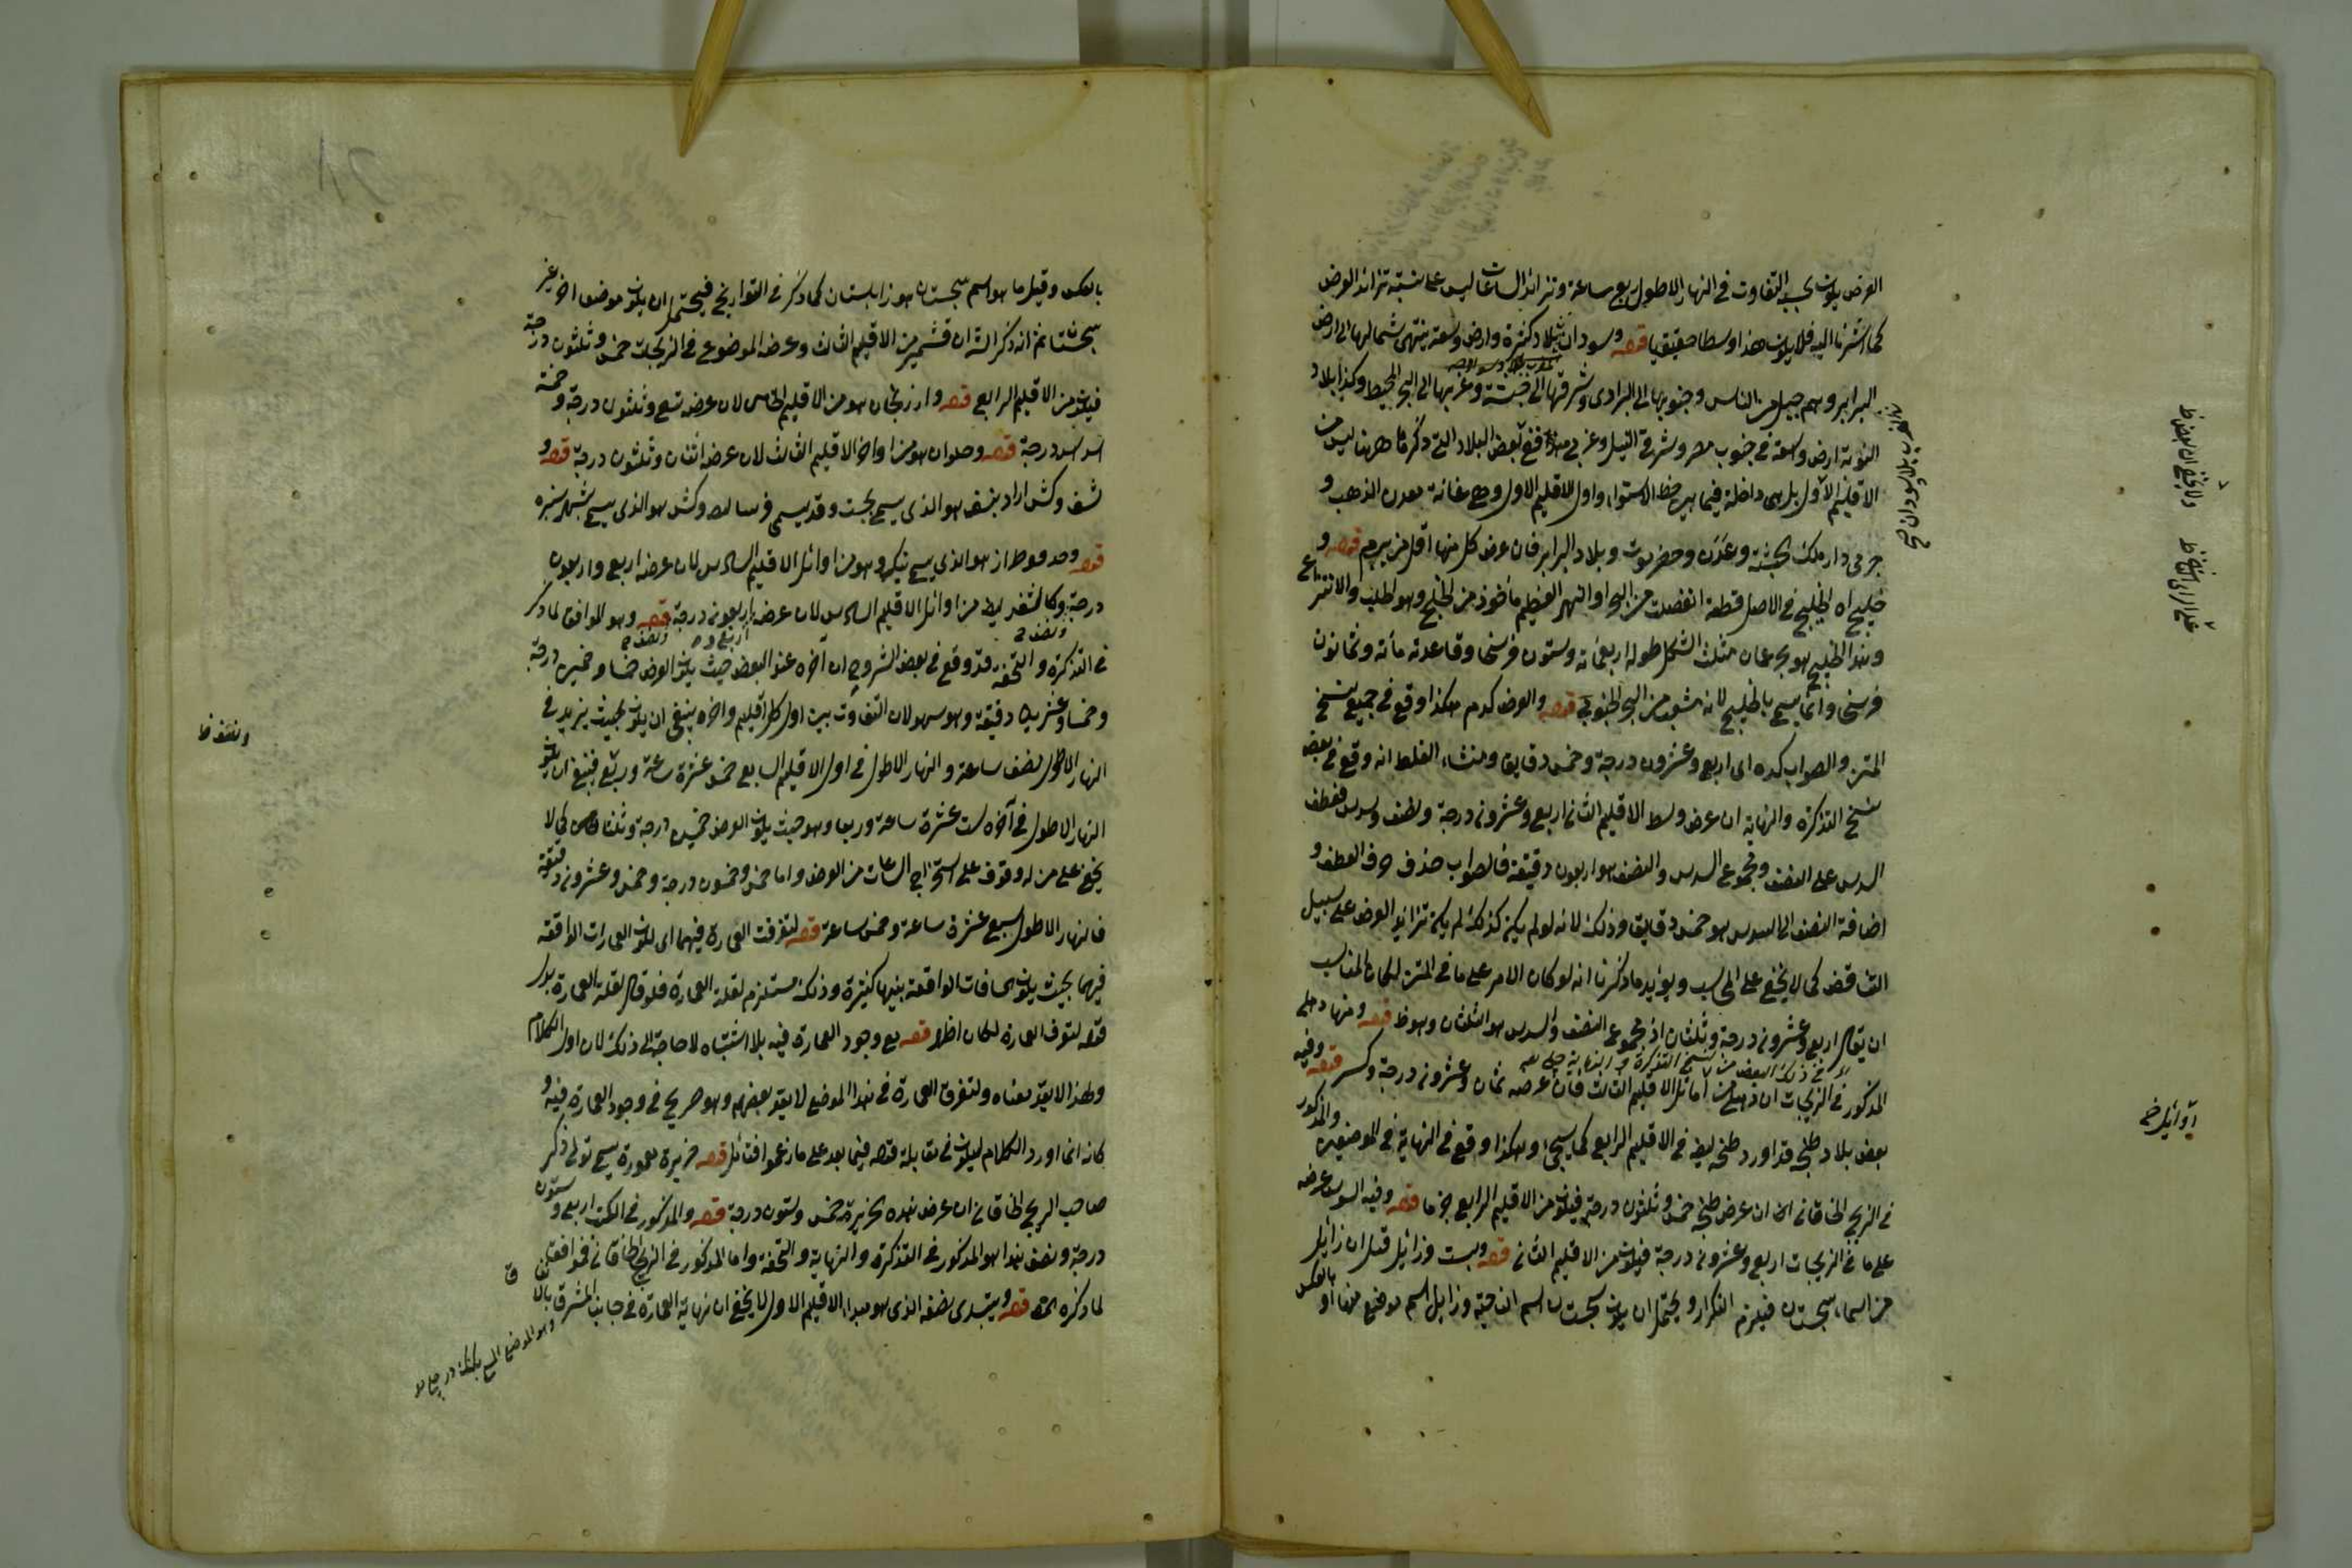 العرض يكون بحسبه التفاوت في النهار الاطول ربع ساعة وتزائد الساعات ليس على نسبة تزائد العرض
كما اشرنا اليه فلا يكون هذا وسطا حقيقيا قصه وسودان بلاد كثيرة وارض وسعة ينتهى شمالها الى ارض
البرابر وهم جيل من الناس وجنوبها الى البرارى وشرقها الى حبشة وغربها الى البحر المحيط وكذا بلاد
النوبة ارض وسعة في جنوب مصر وشرقى النيل وغربى فبعض البلاد التى ذكرها ههنا ليس من
الاقليم الاول بل هى داخلة فيما بين خط الاستواء واول الاقليم الاول وهى غانة معدن الذهب و
جرمى دار ملك الحبشة وعدن وحضرموت وبلاد البرابر فان عرض كل منها اقل من يب م قصه و
خليجاه الخليج في الاصل قطعة انفصلت من البحر او النهر العظيم مأخوذ من الخلج وهو الجلب والانتزاع
وهذا الخليج هو بحر عمان مثلث الشكل طوله اربعمائة وستون فرسخا وقاعدته مائة وثمانون
فرسخا وانما يسمى بالخليج لانه منشعب من البحر الجنوبى قصه والعرض كدم هكذا وقع في جميع نسخ
المتن والصواب كده اى اربع وعشرون درجة وخمس دقايق ومنشاء الغلط انه وقع في بعض
نسخ التذكرة والنهاية ان عرض وسط الاقليم الثانى اربع وعشرون درجة ونصف وسدس فعطف
السدس على النصف ومجموع السدس والنصف هو اربعون دقيقة فالصواب حذف حرف العطف و
اضافة النصف الى السدس هو خمس دقايق وذلك لانه لو لم يكن كذلك لم يكن تزائد العرض على سبيل
التناقض كما لا يخفى على المحاسب ويؤيد ما ذكرنا انه لو كان الامر على ما في المتن لكان المناسب
ان يقال اربع وعشرون درجة وثلثان اذ مجموع النصف والسدس هو الثلثان وهو ظ قصه ومنها دهلى
المذكور في الزيجات ان دهلى من اوائل الاقليم الثالث فان عرضه ثمان وعشرون درجة وكسر قصه وفيه
بعض بلاد طنجه قد اورد طنجه ايضا في الاقليم الرابع كما سيجئ وهكذا وقع في النهاية في الموضعين والمذكور
في الزيج الخاقانى ان عرض طنجه خمس وثلثون درجة فيكون من الاقليم الرابع جزما قصه وفيه السوس عرضه
على ما في الزيجات اربع وعشرون درجة فيكون من الاقليم الثانى قصه وبست وزابل قيل ان زابل
من اسماء سجستان فيلزم التكرار ويحتمل ان يكون سجستان اسم الناحية وزابل اسم موضع منها او بالعكس
ولا يخفى ان بعض ظ
اوائل خ
بالعكس وقيل ما هو اسم سجستان هو زابلستان كما ذكر في التواريخ فيحتمل ان يكون موضعا اخر غير
سجستان ثم انه ذكر ان قشمير من الاقليم الثالث وعرضه الموضوع في الزيجات خمس وثلثون درجة
فيكون من الاقليم الرابع قصه وارزنجان هو من الاقليم الخامس لان عرضه تسع وثلثون درجة وخمسة
درجة قصه وحلوان هو من اواخر الاقليم الثالث لان عرضه اثنان وثلثون درجة قصه و
نسف وكش اراد بنسف هو الذى يسمى وقد يسمى وكش هو الذى يسمى بشهر سبزه
قصه هو الذى يسمى وهو من اوائل الاقليم السادس لان عرضه اربع واربعون
درجة وكاشغر ايضا من اوائل الاقليم السادس لان عرضه اربعون درجة قصه وهو الموافق لما ذكر
في التذكرة والتحفة قد وقع في بعض الشروح ان اخره عند البعض حيث يكون العرض خمسا وخمسين درجة
وخمسا وعشرين دقيقة وهو سهو لان التفاوت بين اول كل اقليم واخره ينبغى ان يكون بحيث يزيد في
النهار الاطول نصف ساعة والنهار الاطول في اول الاقليم السابع خمس عشرة ساعة وربع فينبغى ان يكون
النهار الاطول في آخره ست عشرة ساعة وربعا وهو حيث يكون العرض خمسين درجة وثلثا كما لا
يخفى على من له وقوف على استخراج الساعات من العرض واما خمس وخمسون درجة وخمس وعشرون دقيقة
فالنهار الاطول سبع عشرة ساعة وخمس ساعة قصه لتفرقت العمارة فيهما اى لكون العمارات الواقعة
فيهما بحيث يكون المسافات الواقعة بينها كثيرة وذلك مستلزم لقلة العمارة فلو قال لقلة العمارة بدل
قوله لتفرق العمارة لكان اظهر قصه مع وجود العمارة فيه بلا اشتباه لا حاجة الى ذلك لان اول الكلام
وهذا لا يعد معناه ولتفرق العمارة في هذا الموضع لا يعد بعضهم وهو صريح في وجود العمارة فيه و
كانه انما اورد الكلام ليكون في مقابلة قصه فيما بعد على ما زعموا فتأمل قصه جزيرة معمورة يسمى تولى ذكر
صاحب الزيج الخاقانى ان عرض هذه الجزيرة خمس وستون درجة قصه والمذكور في الكتب اربع وستون
درجة ونصف هذا هو المذكور في التذكرة والنهاية والتحفة واما المذكور في الزيج الخاقانى فموافق
لما ذكره المص قصه ويبتدى نصفه الذى هو مبداء الاقليم الاول لا يخفى ان نهاية العمارة في جانب المشرق
ونصف ظ